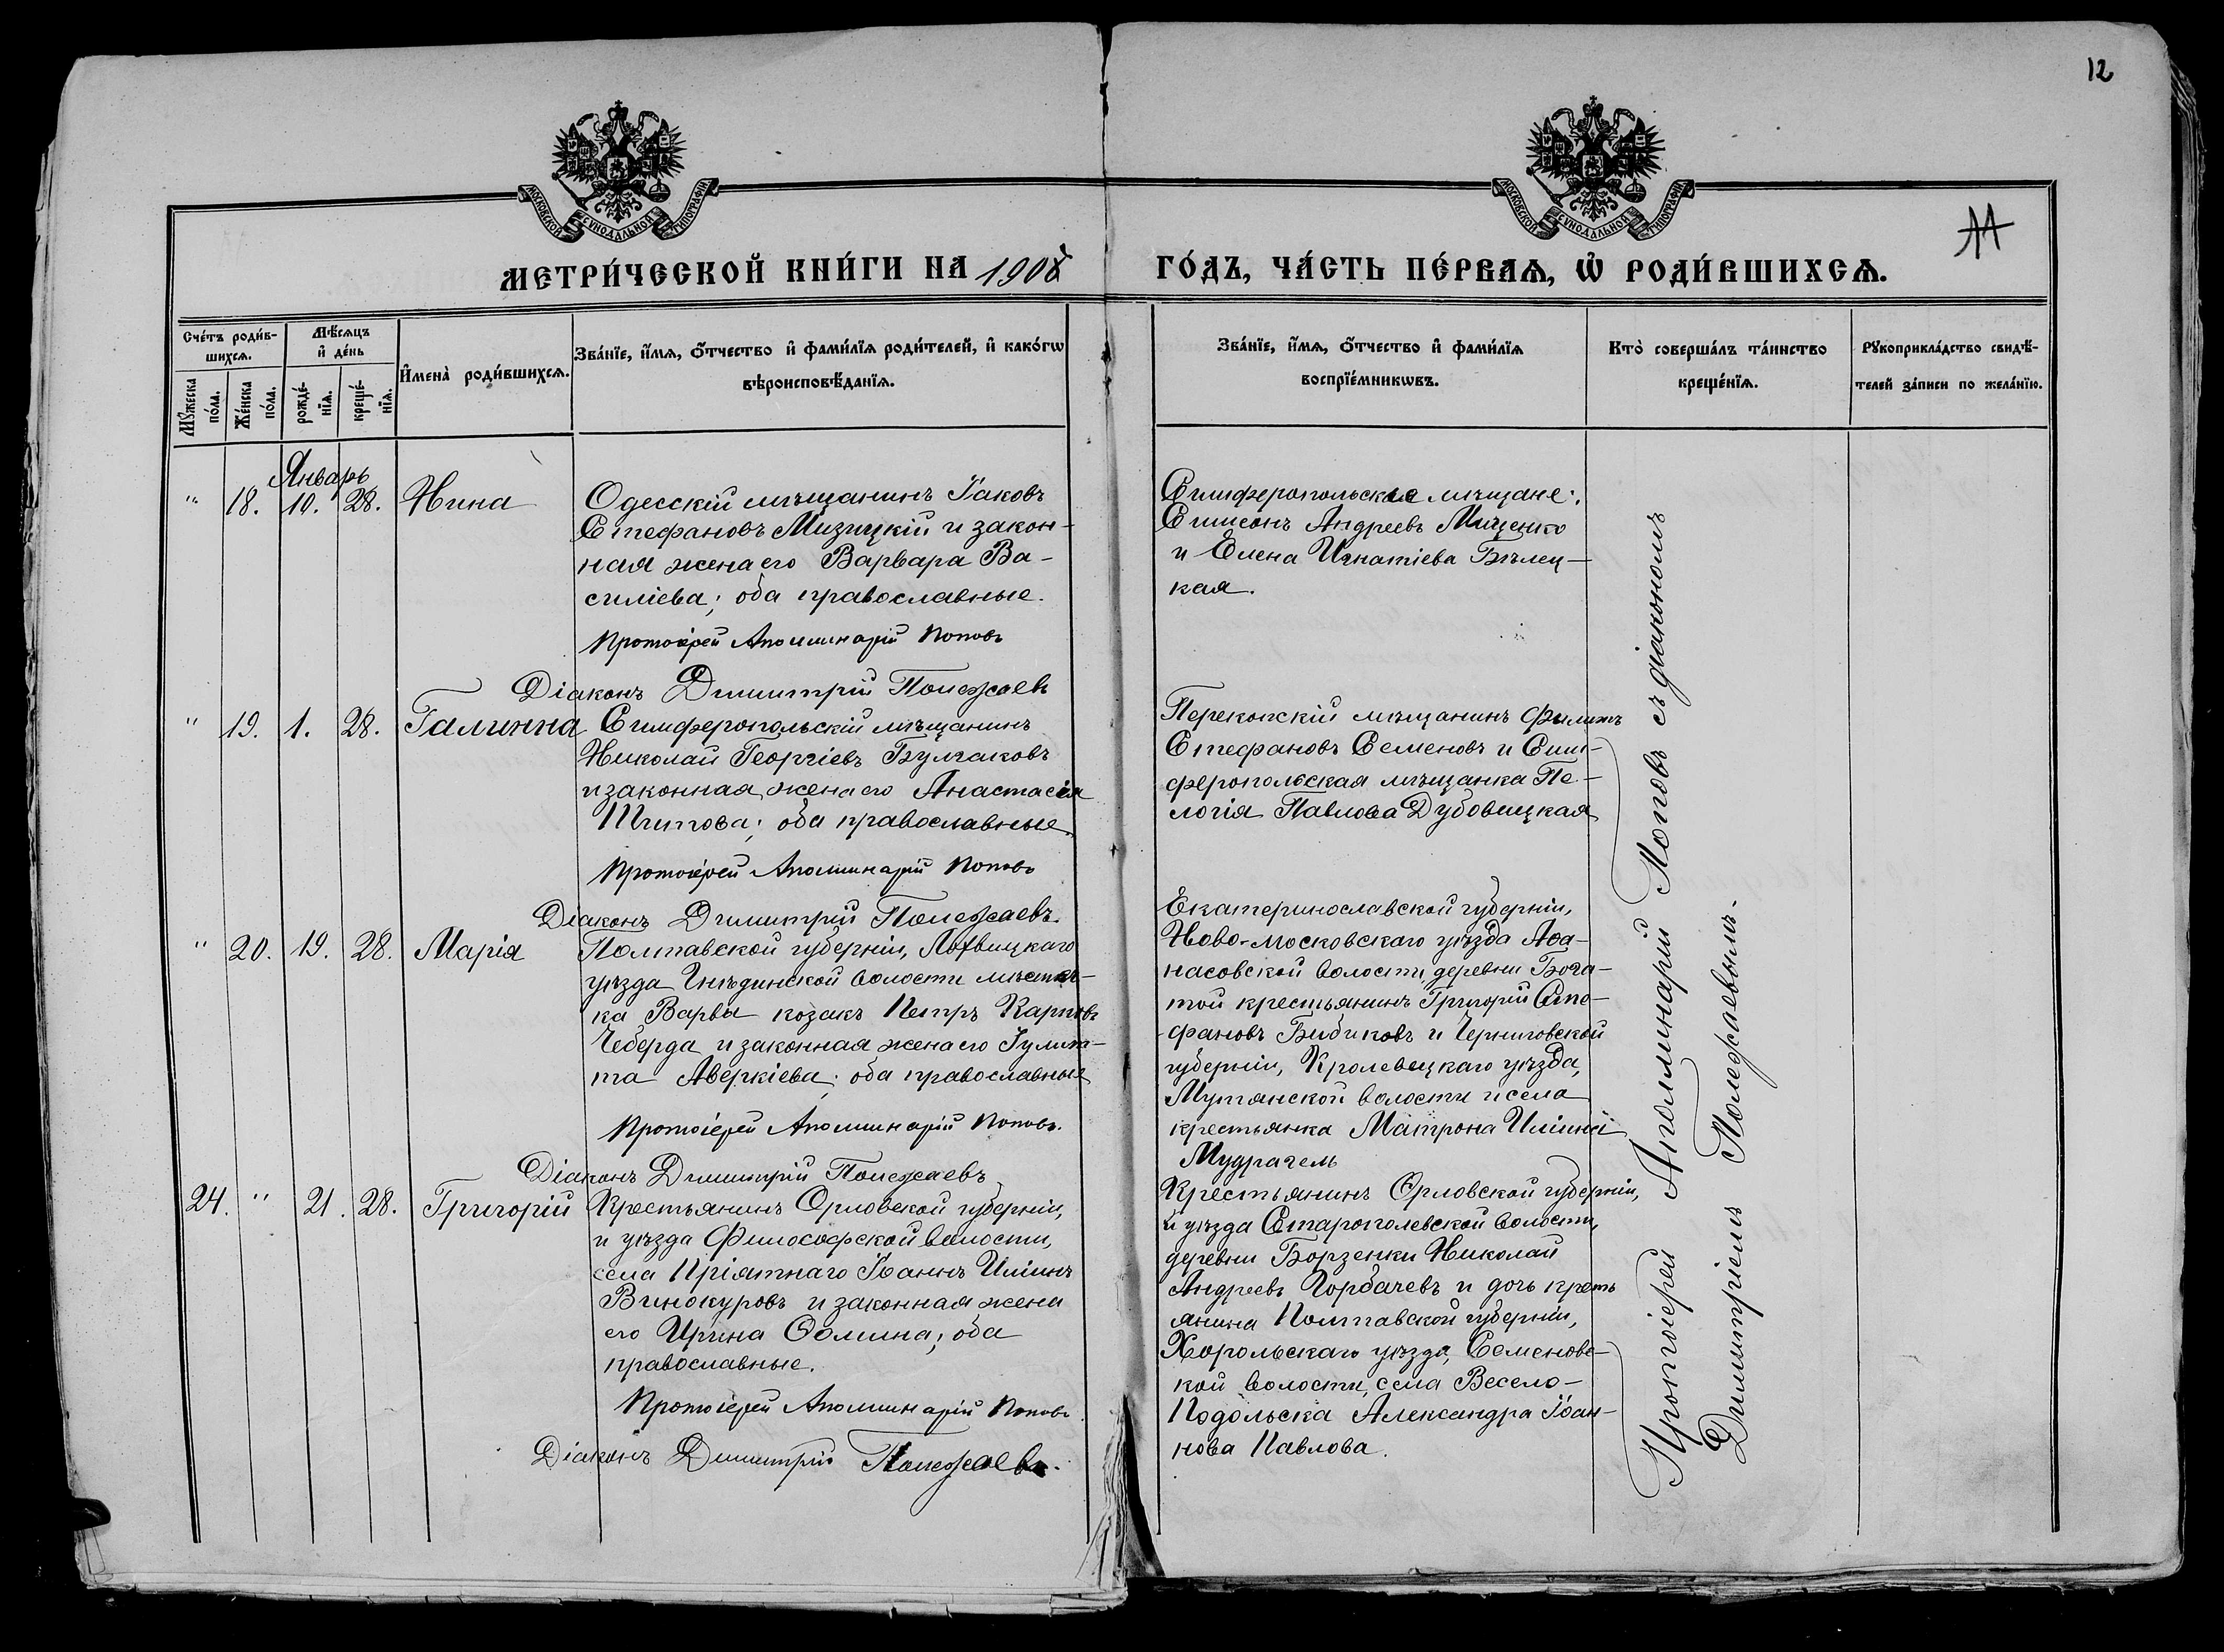 12
11
МОСКОВСКОЙ СѴНОДАЛЬНОЙ ТИПОГРАФІИ
МОСКОВСКОЙ СѴНОДАЛЬНОЙ ТИПОГРАФІИ
МЕТРИ́ЧЕСКОЙ КНИ́ГИ НА 1908
ГО́ДЪ, ЧА́СТЬ ПЕ́РВАѦ, Ѡ҆ РОДИ́ВШИХСѦ.
Сче́тъ роди́в-
шихсѧ.
Мѣ́сѧцъ
и҆ де́нь
Мꙋ́жеска
по́ла.
Же́нска
по́ла.
рожде́-
нїѧ.
креще́-
нїѧ.
И҆мена̀ роди́вшихсѧ.
Зва́нїе, и҆́мѧ, ѻ҆́тчество и҆ фами́лїѧ роди́телей, и҆ како́гѡ
вѣроисповѣ́данїѧ.
Зва́нїе, и҆́мѧ, ѻ҆́тчество и҆ фами́лїѧ
воспрїе́мникѡвъ.
Кто̀ соверша́лъ та́инство
креще́нїѧ.
Рꙋкоприкла́дство свидѣ́-
телей за́писи по жела́нїю.
Январь
" 18. 10. 28. Нина
Одесскій мѣщанинъ Іаковъ
Стефановъ Мизицкій и закон-
ная жена его Варвара Ва-
силіева; оба православные.
Протоіерей Аполлинарій Поповъ
Діаконъ Димитрій Полежаевъ
Симферопольскіе мѣщане:
Симеонъ Андреевъ Мищенко
и Елена Игнатіева Бѣлец-
кая.
" 19. 1. 28. Галинна
Симферопольскій мѣщанинъ
Николай Георгіевъ Булгаковъ
и законная жена его Анастасія
Титова; оба православные.
Протоіерей Аполлинарій Поповъ
Діаконъ Димитрій Полежаевъ.
Перекопскій мѣщанинъ Филиппъ
Стефановъ Семеновъ и Сим-
феропольская мѣщанка Пе-
логія Павлова Дубовицкая
" 20. 19. 28. Марія
Полтавской губерніи, Лохвицкаго
уѣзда Гнѣдинской волости мѣстеч-
ка Варвы козакъ Петръ Карповъ
Чеберда и законная жена его Іулит-
та Аверкіева; оба православные
Протоіерей Аполлинарій Поповъ.
Діаконъ Димитрій Полежаевъ
Екатеринославской губерніи,
Ново-московскаго уѣзда Аѳа-
насовской волости, деревни Бога-
той крестьянинъ Григорій Сте-
фановъ Бибиковъ и Черниговской
губерніи, Кролевецкаго уѣзда,
Мутянской волости и села
крестьянка Матрона Иліина
Мудрагель
24. " 21. 28. Григорій
Крестьянинъ Орловской губерніи,
и уѣзда Философской волости,
села Пріятнаго Іоаннъ Иліинъ
Винокуровъ и законная жена
его Ирина Ѳомина; оба
православные.
Протоіерей Аполлинарій Поповъ.
Діаконъ Димитрій Полежаевъ.
Крестьянинъ Орловской губерніи,
и уѣзда Староголевской волости,
деревни Борзенки Николай
Андреевъ Горбачевъ и дочь кресть
янина Полтавской губерніи,
Хорольскаго уѣзда, Семеновс-
кой волости, села Весело-
Подольска Александра Іоан-
нова Павлова.
Протоіерей Аполлинарій Поповъ съ діакономъ
Димитріемъ Полежаевымъ.